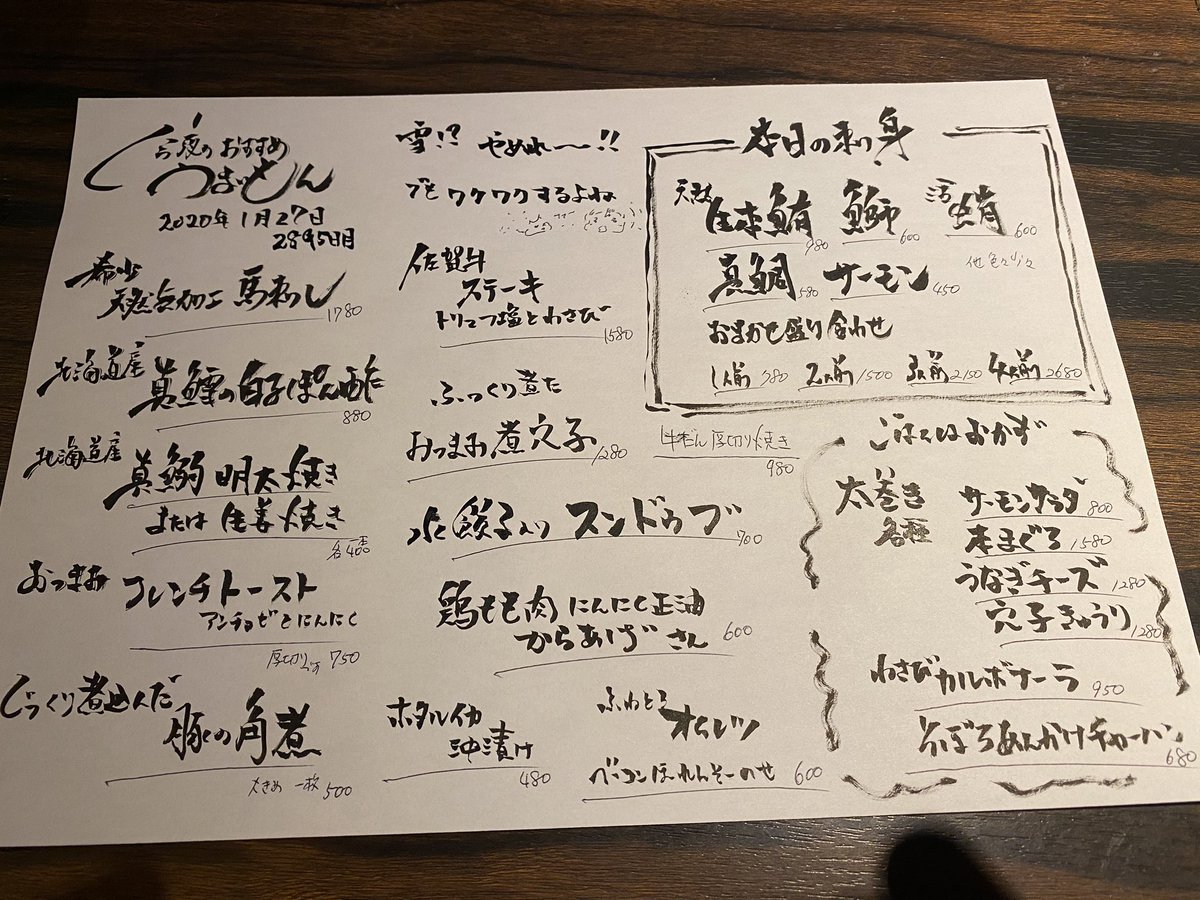 今夜のおすすめ
うまいもん
2020年1月27日
2895日目
希少
天然無加工 馬刺し
1780
北海道産
真鱈の白子ぽん酢
880
北海道産
真鰯 明太焼き
または 生姜焼き
各一本400
おつまみ
フレンチトースト
アンチョビとにんにく
厚切りです 750
じっくり煮込んだ
豚の角煮
大きめ 一枚 500
雪!? やめれ〜!!
でもワクワクするよね
佐賀牛
ステーキ
トリュフ塩とわさび
1580
ふっくり煮た
おつまみ煮穴子
1280
水餃子入り スンドゥブ
700
鶏もも肉 にんにく正油
からあげさん 600
ホタルイカ
沖漬け
480
ふわとろ
オムレツ
ベーコンほーれんそーのせ 600
本日の刺身
天然
生本鮪 980
鰤 600
活〆 蛸 600
真鯛 580
サーモン 450
他色々
おまかせ盛り合わせ
1人前 780 2人前 1500 3人前 2150 4人前 2680
牛たん厚切り焼き
980
ごはんはおかず
太巻き
各種
サーモンサラダ 800
本まぐろ 1580
うなぎチーズ 1280
穴子きゅうり 1280
わさびカルボナーラ 950
そぼろあんかけチャーハン
680